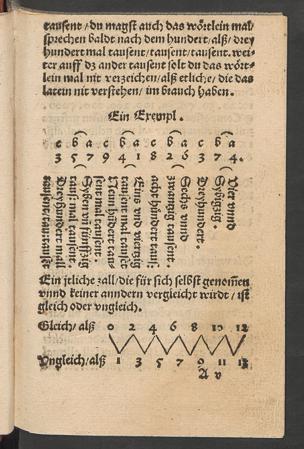 tausent / du magst auch das wörtlein mal
sprechen baldt nach dem hundert / alß / drey
hundert mal tausent / tausent / tausent. wei-
ter auff dz ander tausent solt du das wört-
lein mal nit verzeichen / alß etliche / die das
latein nit verstehen / im brauch haben.
Ein Exempl.
c b a c b a c b a c b a
3 5 7 9 4 1 8 2 6 3 7 4.
Vier vnnd
Sybētzig.
Dreyhundert.
Sechs vnnd
zwantzig tausent
acht hundert tau:
Eins vnd viertzig
tausent mal tausent
Neun hūdert tau
sent mal tausent.
Syben vñ fünfftzig
tau: mal tau: tausent
Dreyhundert mall
tausent: tau: tausēt
Ein jtliche zall / die für sich selbst genom̄en
vnnd keiner anndern vergleicht wirdt / ist
gleich oder vngleich.
Gleich / alß 0 2 4 6 8 10 12
Vngleich / alß 1 3 5 7 9 11 13
A v